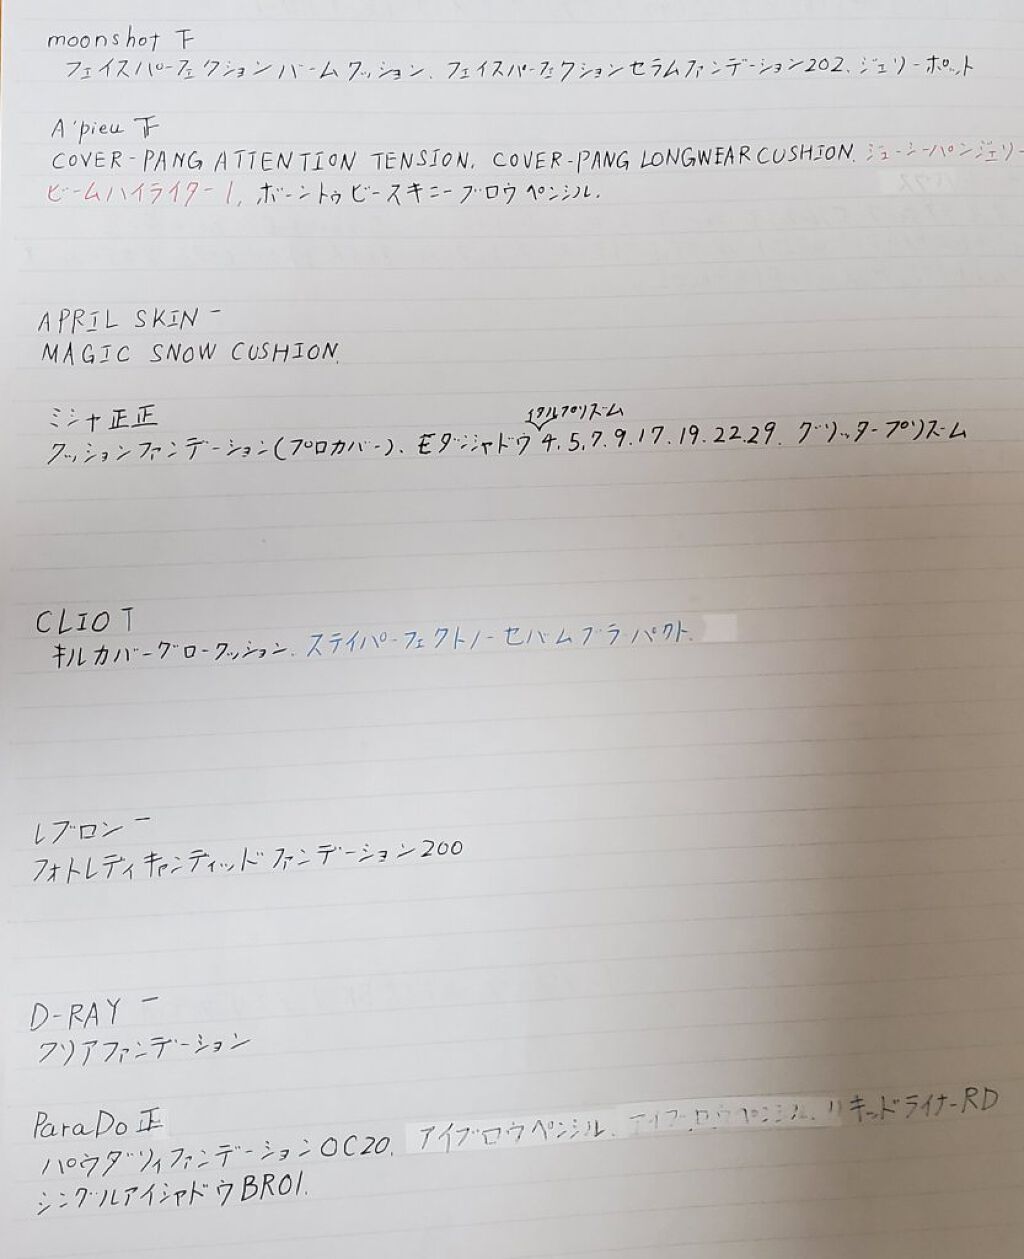 moonshot 下
フェイスパーフェクションバームクッション、フェイスパーフェクションセラムファンデーション202、ジェリーポット
A'pieu 正
COVER-PANG ATTENTION TENSION. COVER-PANG LONGWEAR CUSHION. ジューシーパンジェリー
ビームハイライター1, ボーントゥビースキニーブロウペンシル.
APRIL SKIN 一
MAGIC SNOW CUSHION.
ミシャ 正正
イタルプリズム
クッションファンデーション(プロカバー)、モダンシャドウ 4.5.7.9.17.19.22.29. グリッタープリズム
CLIO T
キルカバーグロークッション. ステイパーフェクトノーセバムブラーパクト.
レブロン 一
フォトレディキャンディッドファンデーション200
D-RAY 一
クリアファンデーション
ParaDo 正
パウダリィファンデーションOC20. アイブロウペンシル. アイブロウペンシル. リキッドライナーRD
シングルアイシャドウBR01.